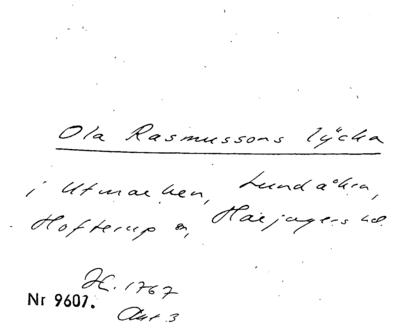 Ola Rasmussons lycka
i Utmarken, Lundåkra,
Hofterup sn, Harjagers hd.
H. 1767
Nr 9607.
Akt 3